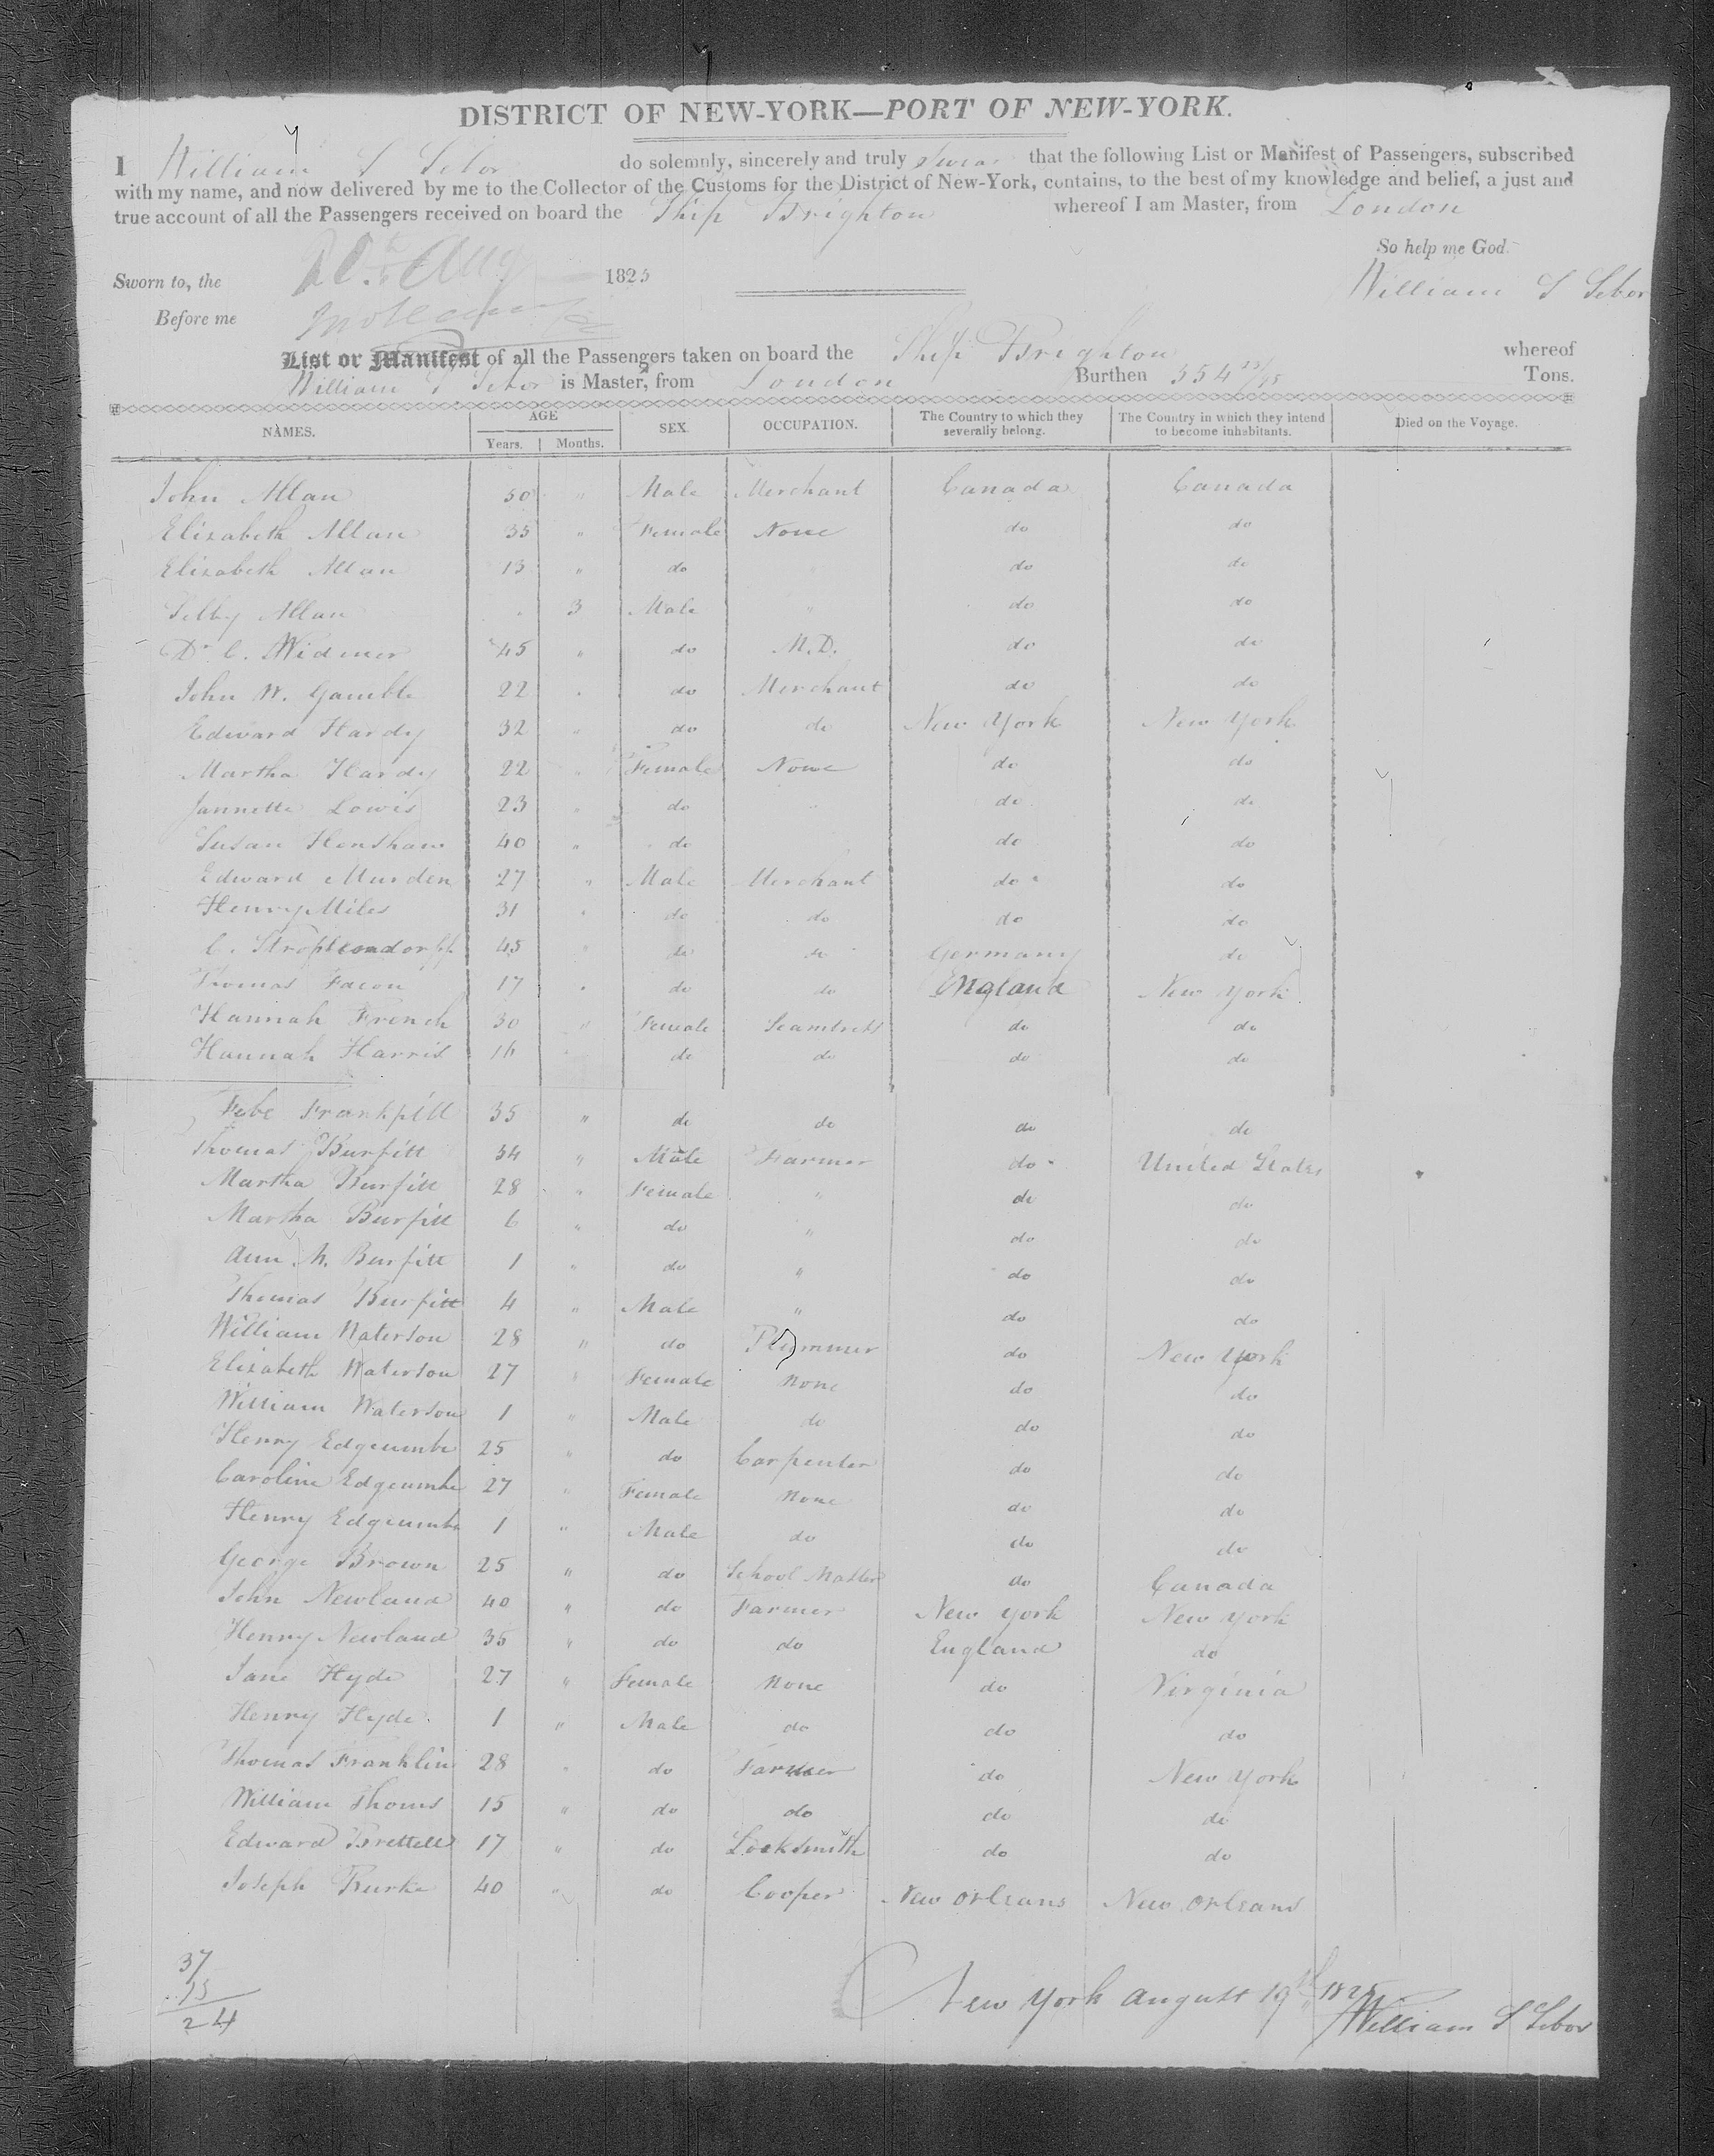 DISTRICT OF NEW-YORK—PORT OF NEW-YORK.
I William S Sebor do solemnly, sincerely and truly swear that the following List or Manifest of Passengers, subscribed
with my name, and now delivered by me to the Collector of the Customs for the District of New-York, contains, to the best of my knowledge and belief, a just and
true account of all the Passengers received on board the Ship Brighton whereof I am Master, from London
So help me God.
Sworn to, the 20th Aug 1825
William S Sebor
Before me
List or Manifest of all the Passengers taken on board the Ship Brighton whereof
William S Sebor is Master, from London Burthen 354 Tons.
NAMES. AGE Years. Months. SEX. OCCUPATION. The Country to which they severally belong. The Country in which they intend to become inhabitants. Died on the Voyage.
John Allan 50 " Male Merchant Canada Canada
Elizabeth Allan 35 " Female None do do
Elizabeth Allan 13 " do do do
Selby Allan 3 Male " do do
Dr C. Widmer 45 " do M.D. do do
John W. Gamble 22 " do Merchant do do
Edward Hardy 32 " do do New York New York
Martha Hardy 22 " Female None do do
Jannette Lewis 23 " do " do do
Susan Henshaw 40 " do do do
Edward Murden 27 " Male Merchant do do
Henry Miles 31 " do do do do
C. 45 " do do Germany do
Thomas Facon 17 " do do England New York
Hannah French 30 " Female Seamtress do do
Hannah Harris 16 " do do do do
Febe Frankpitt 35 " do do do do
Thomas Burfitt 34 " Male Farmer do United States
Martha Burfitt 28 " Female " do do
Martha Burfitt 6 " do " do do
Ann M. Burfitt 1 " do " do do
Thomas Burfitt 4 " Male " do do
William Waterson 28 " do Plummer do New York
Elizabeth Waterson 27 " Female None do do
William Waterson 1 " Male do do do
Henry Edgcumbe 25 " do Carpenter do do
Caroline Edgcumbe 27 " Female None do do
Henry Edgcumbe 1 " Male do do do
George Brown 25 " do School Master do Canada
John Newland 40 " do Farmer New York New York
Henry Newland 35 " do do England do
Jane Hyde 27 " Female None do Virginia
Henry Hyde 1 " Male do do do
Thomas Franklin 28 " do Farmer do New York
William Thoms 15 " do do do do
Edward Brettell 17 " do Locksmith do do
Joseph Burke 40 " do Cooper New Orleans New Orleans
37
13
24
New York August 19th 1825
William S Sebor